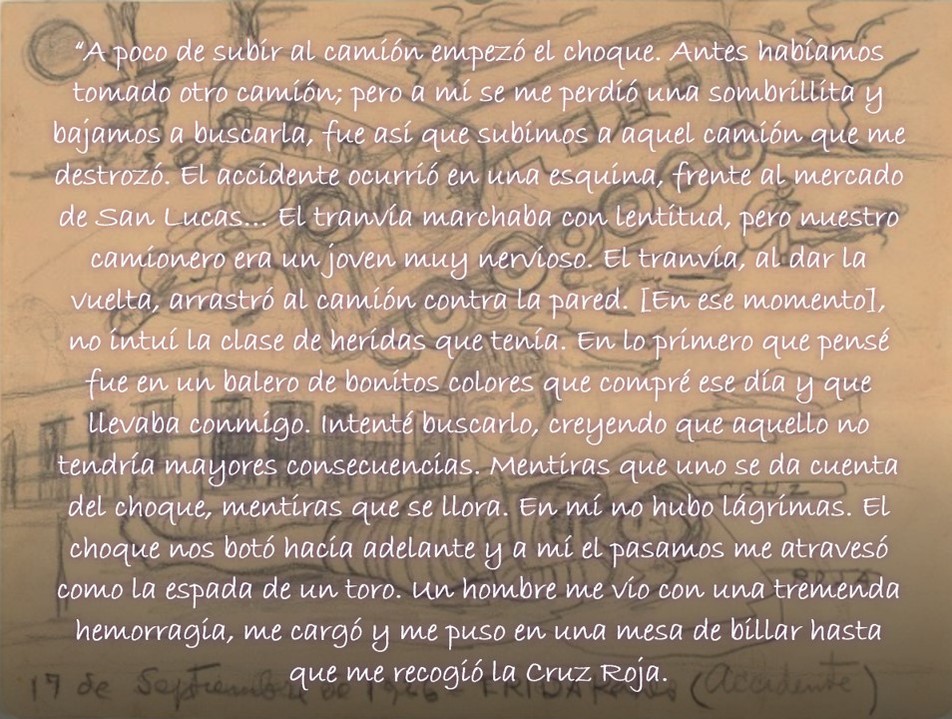 “A poco de subir al camión empezó el choque. Antes habíamos
tomado otro camión; pero a mí se me perdió una sombrillita y
bajamos a buscarla, fue así que subimos a aquel camión que me
destrozó. El accidente ocurrió en una esquina, frente al mercado
de San Lucas... El tranvía marchaba con lentitud, pero nuestro
camionero era un joven muy nervioso. El tranvía, al dar la
vuelta, arrastró al camión contra la pared. [En ese momento],
no intuí la clase de heridas que tenía. En lo primero que pensé
fue en un balero de bonitos colores que compré ese día y que
llevaba conmigo. Intenté buscarlo, creyendo que aquello no
tendría mayores consecuencias. Mentiras que uno se da cuenta
del choque, mentiras que se llora. En mí no hubo lágrimas. El
choque nos botó hacia adelante y a mí el pasamos me atravesó
como la espada de un toro. Un hombre me vio con una tremenda
hemorragia, me cargó y me puso en una mesa de billar hasta
que me recogió la Cruz Roja.
CRUZ
ROJA
17 de Septiembre de 1926 - FRIDA (Accidente)